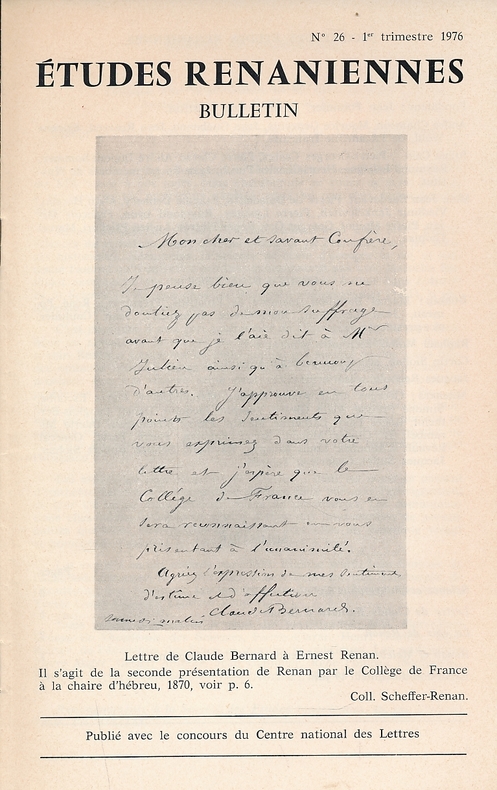 N° 26 - 1er trimestre 1976
ÉTUDES RENANIENNES
BULLETIN
Mon cher et savant Confrère,
Je pense bien que vous ne
doutiez pas de mon suffrage
avant que je l'aie dit à Mr
Julien ainsi qu'à beaucoup
d'autres. J'approuve en tous
points les sentiments que
vous exprimez dans votre
lettre et j'espère que le
Collége de France vous en
sera reconnaissant en vous
présentant à l'unanimité.
Agréez l'expression de mes sentiments
d'estime et d'affection
Claude Bernard.
samedi matin
Lettre de Claude Bernard à Ernest Renan.
Il s'agit de la seconde présentation de Renan par le Collège de France
à la chaire d'hébreu, 1870, voir p. 6.
Coll. Scheffer-Renan.
Publié avec le concours du Centre national des Lettres